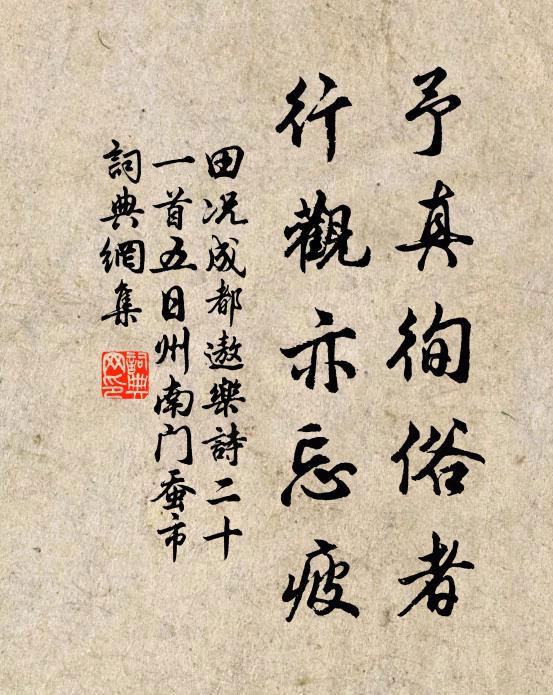 予真徇俗者
行觀亦忘疲
田况成都遨樂詩二十
一首五日州南门蚕市
詞典網集
詞典网印